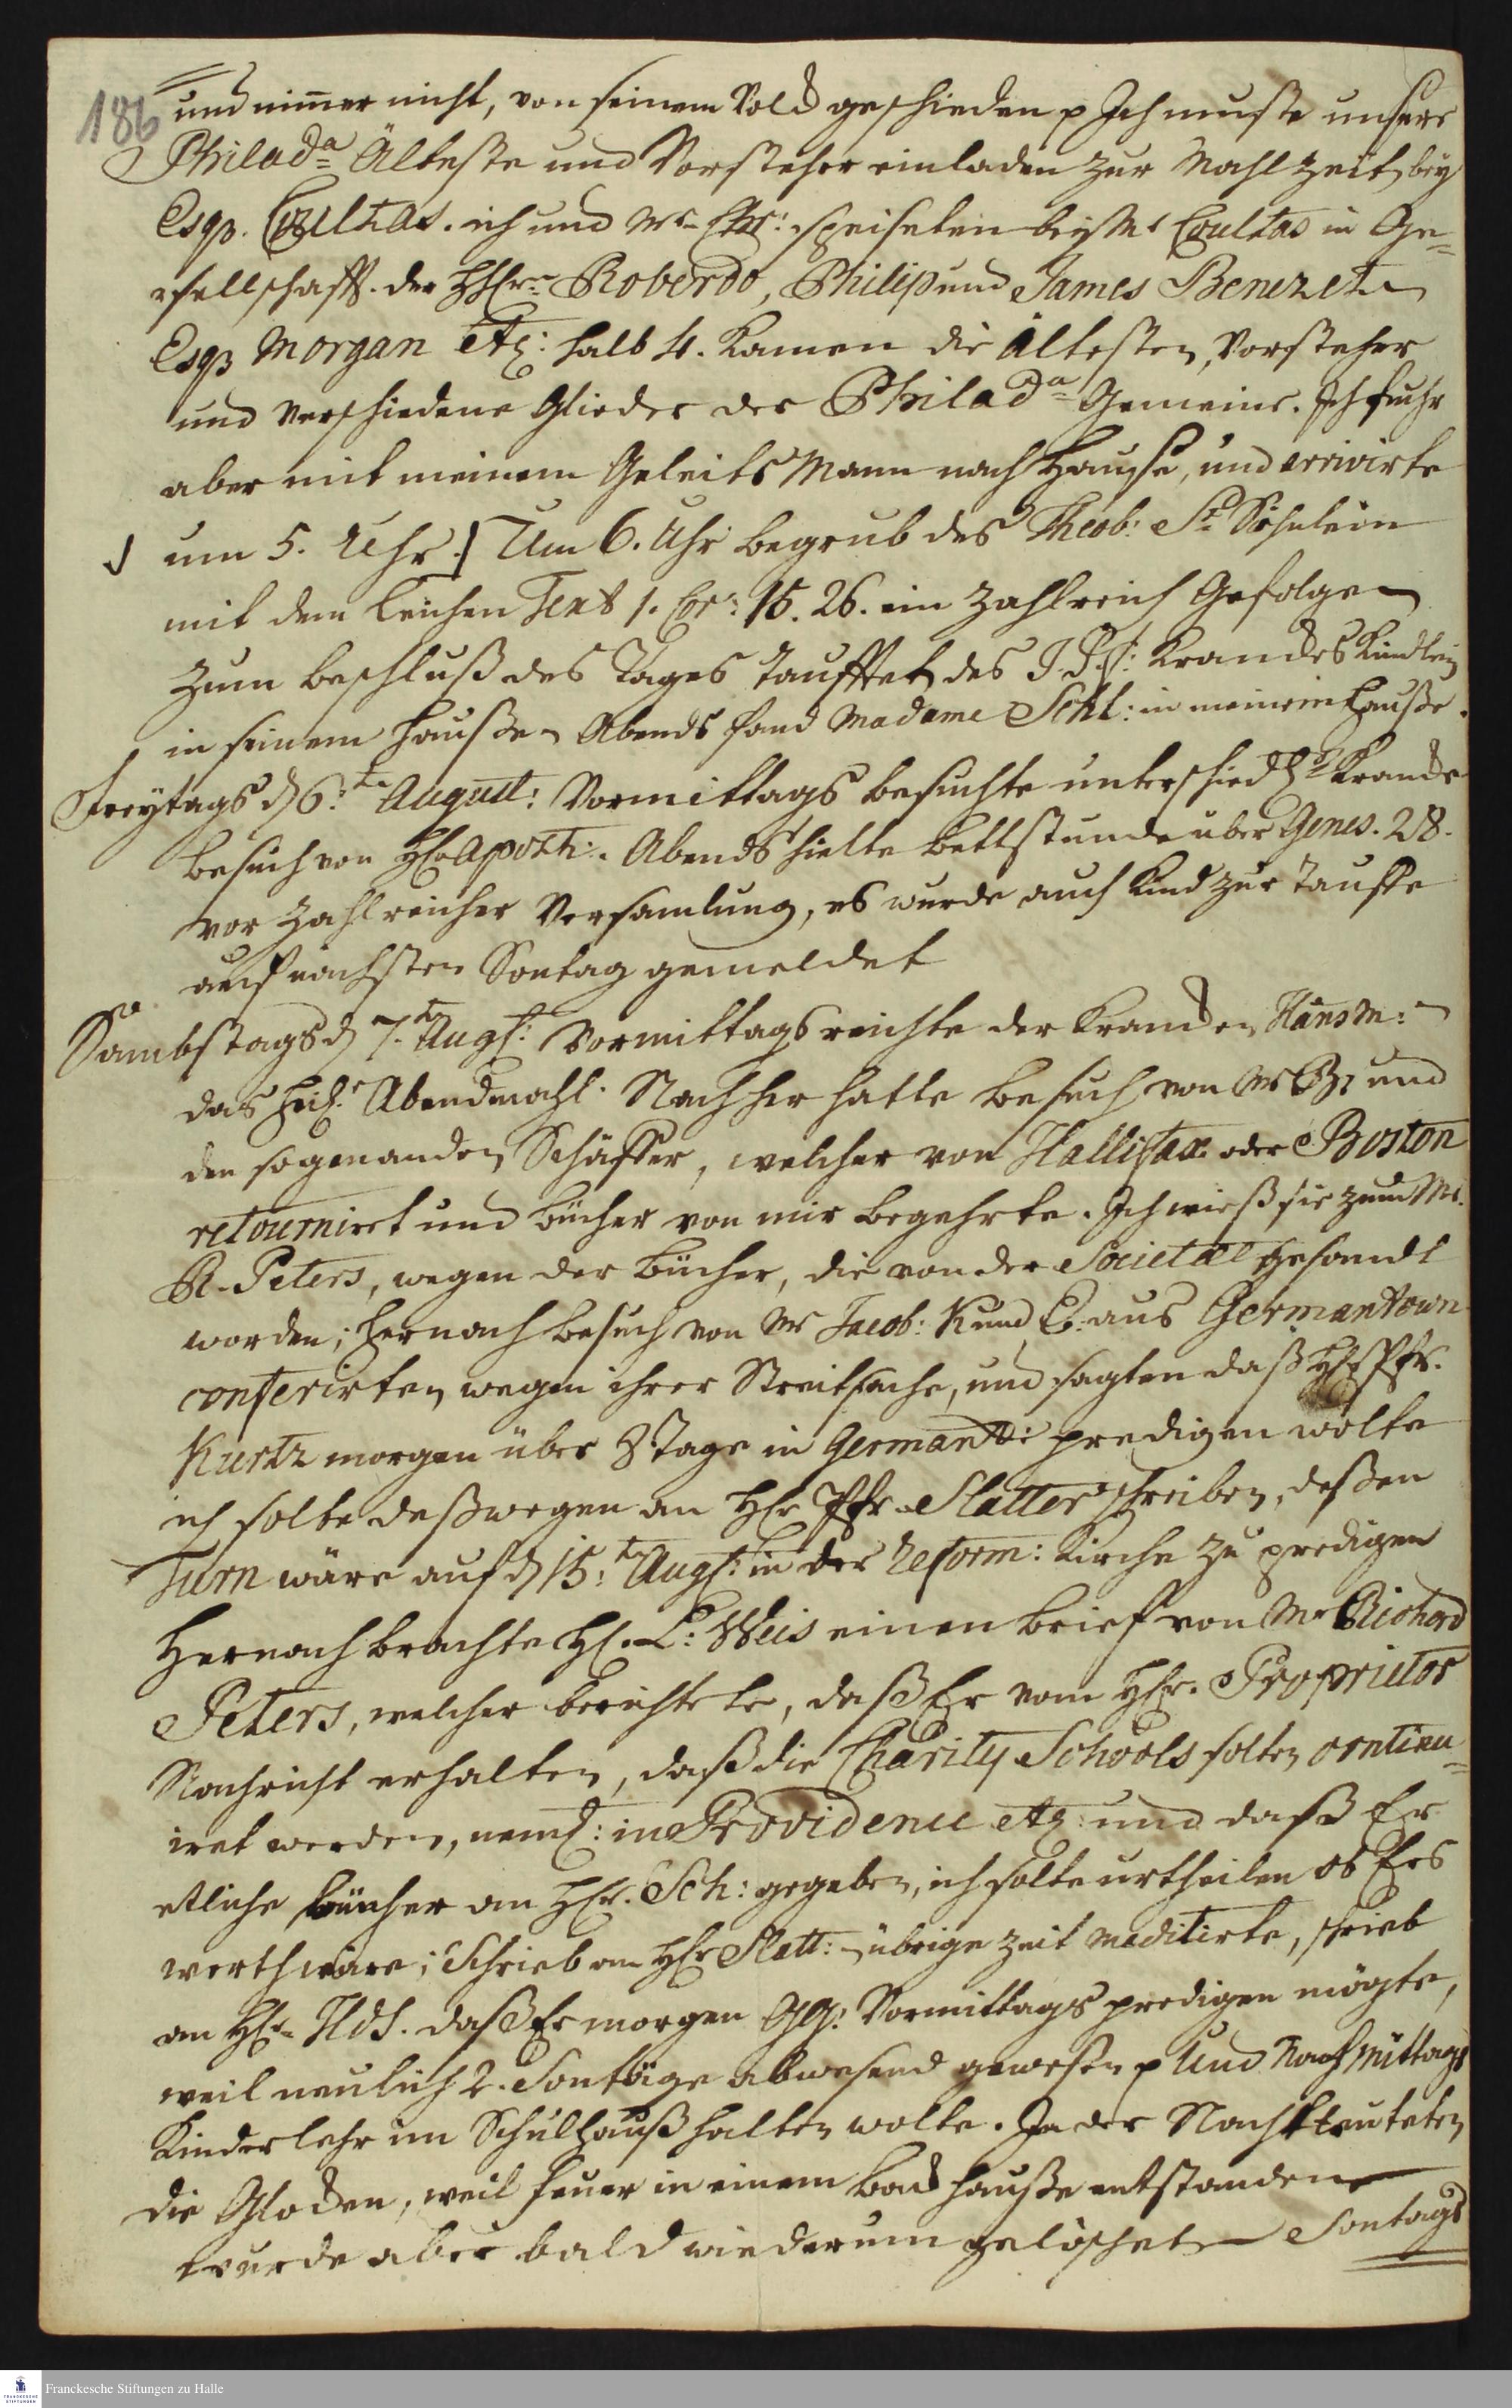 186
und nimmer nicht, von seinem Volck geschieden p Ich muste unsere
Philada Älteste und Vorsteher einladen zur Mahlzeit bey
Esqr. Coultas. ich und Mr speiseten bey Mr Coultas in Ge=
=sellschafft der HhErn Roberdo, Philip und James Benezet
Esqr Morgan etc: halb 4. kamen die ältesten, Vorsteher
und verschiedene Glieder der Philada Gemeine. Ich fuhr
aber mit meinem Geleits Mann nach Hause, und arrivirte
um 5. Uhr.] Um 6. Uhr begrub des Theob: St Söhnlein
mit dem Leichen Text 1. Cor: 15. 26. ein zahlreich Gefolge
zum beschluß des Tages Tauffet des krancks Kindlein
in seinem Hauße Abends fand Madame Schl: in meinem Hauße.
Freytags d 6:ten August: Vormittags besuchte unterschiedl: krancke
besuch von HErn Apoth:. Abends hielte bettstunde über Genes. 28.
vor zahlreicher Versamlung, es wurde auch Kind zur Tauffe
auf nächsten Sontag gemeldet
Sambstags d 7.ten Augs: Vormittags reichte der krancken Hansm:
das heil: Abendmahl. Nachher hatte besuch von Mr Bz und
den sogenanden Schäffer, welcher von Hallifax oder Boston
retourniret und bücher von mir begehrte. Ich wieß sie zum Mr.
R. Peters, wegen der bücher, die von der Societaet gesandt
worden; hernach besuch von Mr Jacob: K und E: aus Germantown
conferirten wegen ihrer Streitsache, und sagten daß HEr Pfr.
Kurtz morgen über 8. Tage in Germant: predigen wolte
ich solte deßwegen an HEr Pfr Slatter schreiben, deßen
Turn wäre auf d 15:ten Augs: in der Reform: Kirche zu predigen
Hernach brachte H. L: Weis einen brief von Mr Richard
Peters, welcher berichtete, daß Er vom HEr. Proprietor
Nachricht erhalten, daß die Charity Schools solten continu=
iret werden, neml: in Providence etc: und daß Er
etliche bücher an HEr. Sch: gegeben, ich solte urtheilen ob Ers
werth wäre; Schrieb an HEr Slatt: übrige Zeit meditirte, schrieb
an HEr Hds. daß Er morgen GG: Vormittags predigen mögte,
weil neulich 2. Sontäge abwesend gewesen p Und Nachmittags
Kinderlehr im Schulhauß halten wolte. In der Nacht leuteten
die Glocken, weil Feuer in einem backhauße entstanden
wurde aber bald wiederum gelöschet Sontags
Franckesche Stiftungen zu Halle